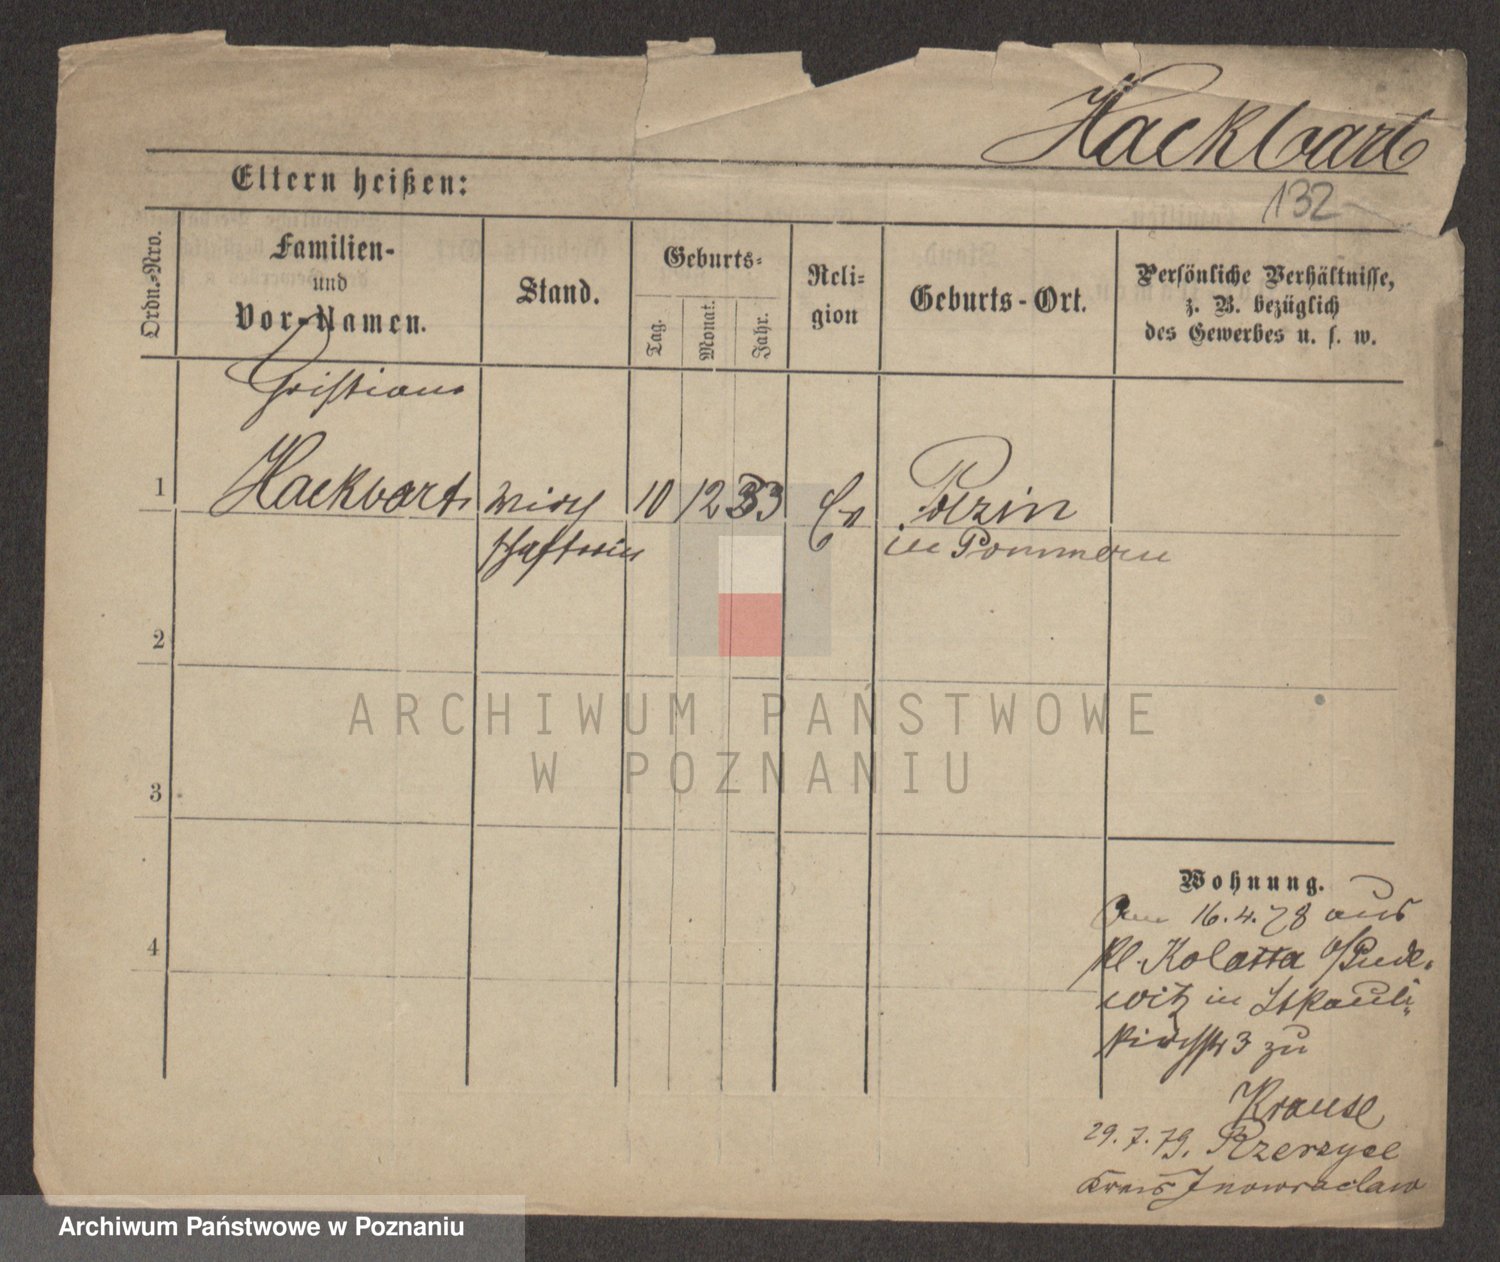 Hackbart
132
Eltern heißen:
Ordn.-Nro.
Familien-
und
Vor-Namen.
Stand.
Geburts-
Tag.
Monat.
Jahr.
Reli-
gion
Geburts-Ort.
Persönliche Verhältnisse,
z. B. bezüglich
des Gewerbes u. s. w.
1
Hackbart
Wirth
10
12
33
Ev
in Pommern
schafterin
2
ARCHIWUM PAŃSTWOWE
W POZNANIU
3
Wohnung.
16.4.78 aus
Kl. Kolatta b/Pude-
witz in St Pauli-
kirchstr 3 zu
Krause
4
29.7.79.
Kreis Inowraclaw
Archiwum Państwowe w Poznaniu